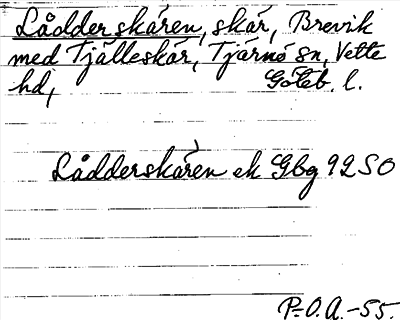 Lådderskären, skär, Brevik
med Tjälleskär, Tjärnö sn, Vette
hd, Göteb. l.
Lådderskären ek Gbg 92 SO
P-O.A.-55.